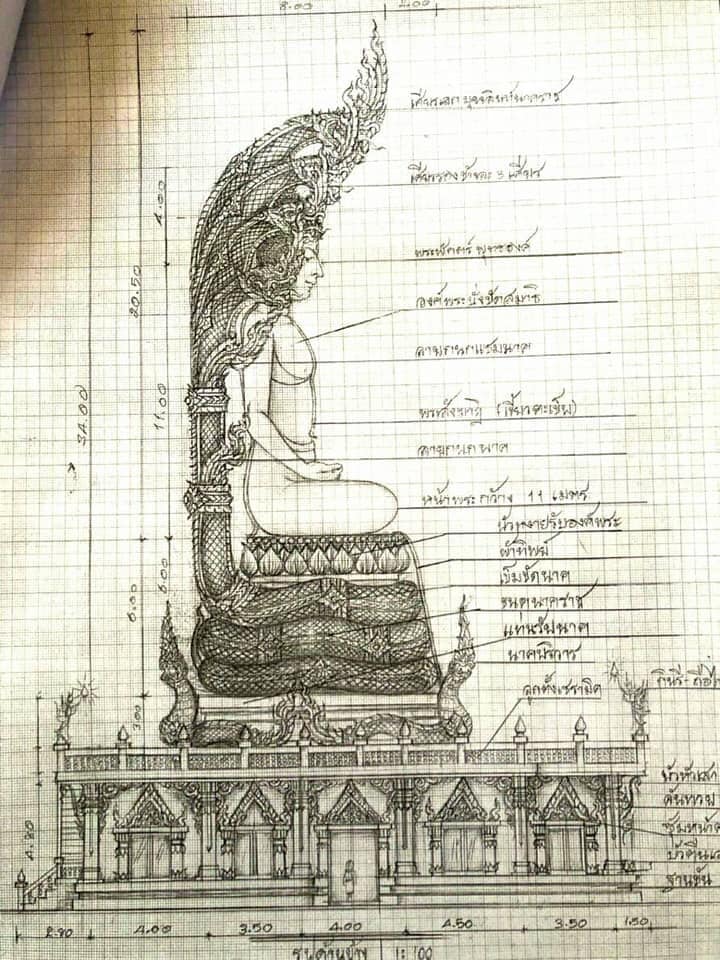 8.00 2.00
เศียรเอก มุจลินท์นาคราช
เศียรรอง ข้างละ 3 เศียร
4.00
พระพักตร์ พุทธองค์
20.50
องค์พระนั่งขัดสมาธิ
ลายกนกแซมนาค
34.00
11.00
พระสังฆาฏิ (เขี้ยวตะขาบ)
ลายกนกนาค
หน้าพระกว้าง 11 เมตร
บัวหงายรับองค์พระ
ผ้าทิพย์
เข็มขัดนาค
6.00
6.00
ขนดนาคราช
แท่นรับนาค
นาคบริวาร
กินรี-ถือ
ลูกตั้งเซรามิค
3.00
บัวหัวเสา
คันทวย
4.80
ซุ้มหน้า
ฐานชั้น
2.80 4.00 3.50 4.00 4.50 3.50 1.50
รูปด้านข้าง 1:100